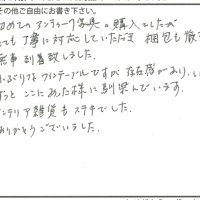 その他ご自由にお書き下さい。
初めてのアンティーク家具の購入でしたが
ても丁寧に対応していただき 梱包も
無事到着致しました。
小ぶりなワインテーブルですが 存在感があり、
ずっとここにあった様に馴染んでいます。
ンテリア雑貨もステキでした。
ありがとうございました。